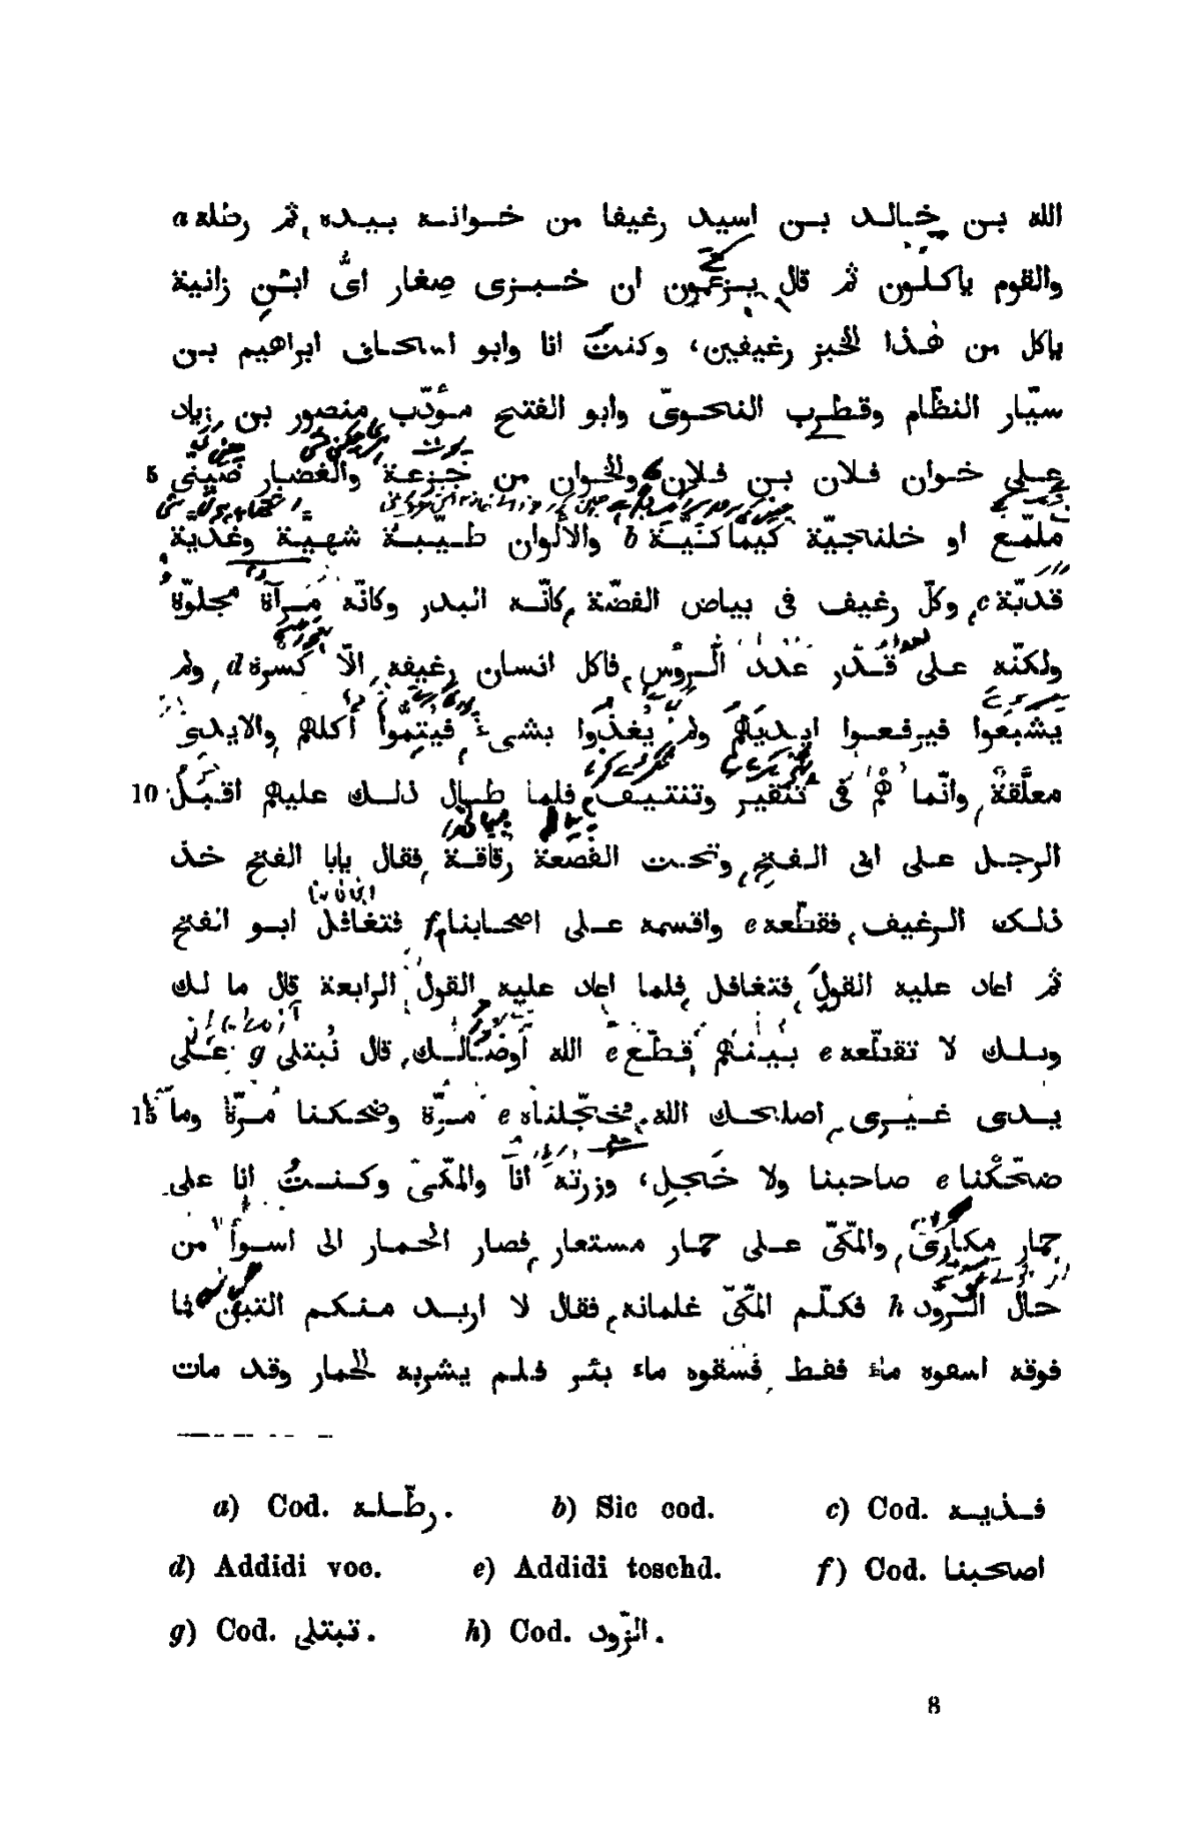 الله بن خالد بن اسيد رغيفا من خوانه بيده ثم رطله a
والقوم ياكلون ثم قال يزعمون ان خبزى صغار اىُّ ابن زانية
ياكل من هذا الخبز رغيفين، وكنت انا وابو اسحاق ابراهيم بن
سيّار النظّام وقطرب النحوىّ وابو الفتح مؤدّب منصور بن زياد
5 على خوان فلان بن فلان والخوان من جَزعة والغضار صينى
ملمّع او خلنجيّة كيماكيّة b والألوان طيّبة شهية وغذية
قديّة c وكلّ رغيف فى بياض الفضّة كانّه البدر وكانّه مرآة مجلوّة
ولكنّه على قَدْر عَدَد الرؤس فاكل انسان رغيفه الّا كسرة d ولم
يشبعوا فيرفعوا ايديهم ولم يغذوا بشىء فيتمّوا أكلهم والايدى
10 معلّقة وانّما هم فى تنقير وتنتيف فلما طال ذلك عليهم اقبل
الرجل على ابى الفتح وتحت القصعة رقاقة فقال يابا الفتح خذ
ذلك الرغيف فقطّعه e واقسمه على اصحابنا f فتغافل ابو الفتح
ثم اعاد عليه القول فتغافل فلما اعاد عليه القول الرابعة قال ما لك
ويلك لا تقطّعه e بينهم قطّع e الله أوصالك قال نُبتلى g على
15 يدى غيرى اصلحك الله فخجّلناه e مرّة وضحكنا مرّة وما
ضحّكْنا e صاحبنا ولا خجل، وزرته انا والمكّى وكنتُ انا على
حمار مكارىّ والمكّىّ على حمار مستعار فصار الحمار الى اسوأ من
حال المزوّد h فكلّم المكّىّ غلمانه فقال لا اريد منكم التبن فما
فوقه اسقوه ماء فقط فسقوه ماء بئر فلم يشربه الحمار وقد مات
a) Cod. رطّله. b) Sic cod. c) Cod. فذيه
d) Addidi voc. e) Addidi teschd. f) Cod. اصحبنا
g) Cod. تبتلى. h) Cod. الزّود.
8